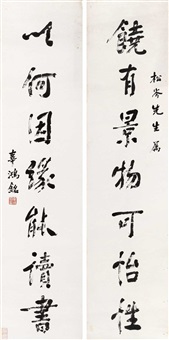 松岑先生属
饒有景物可怡性
以何因緣能讀書
辜鴻銘